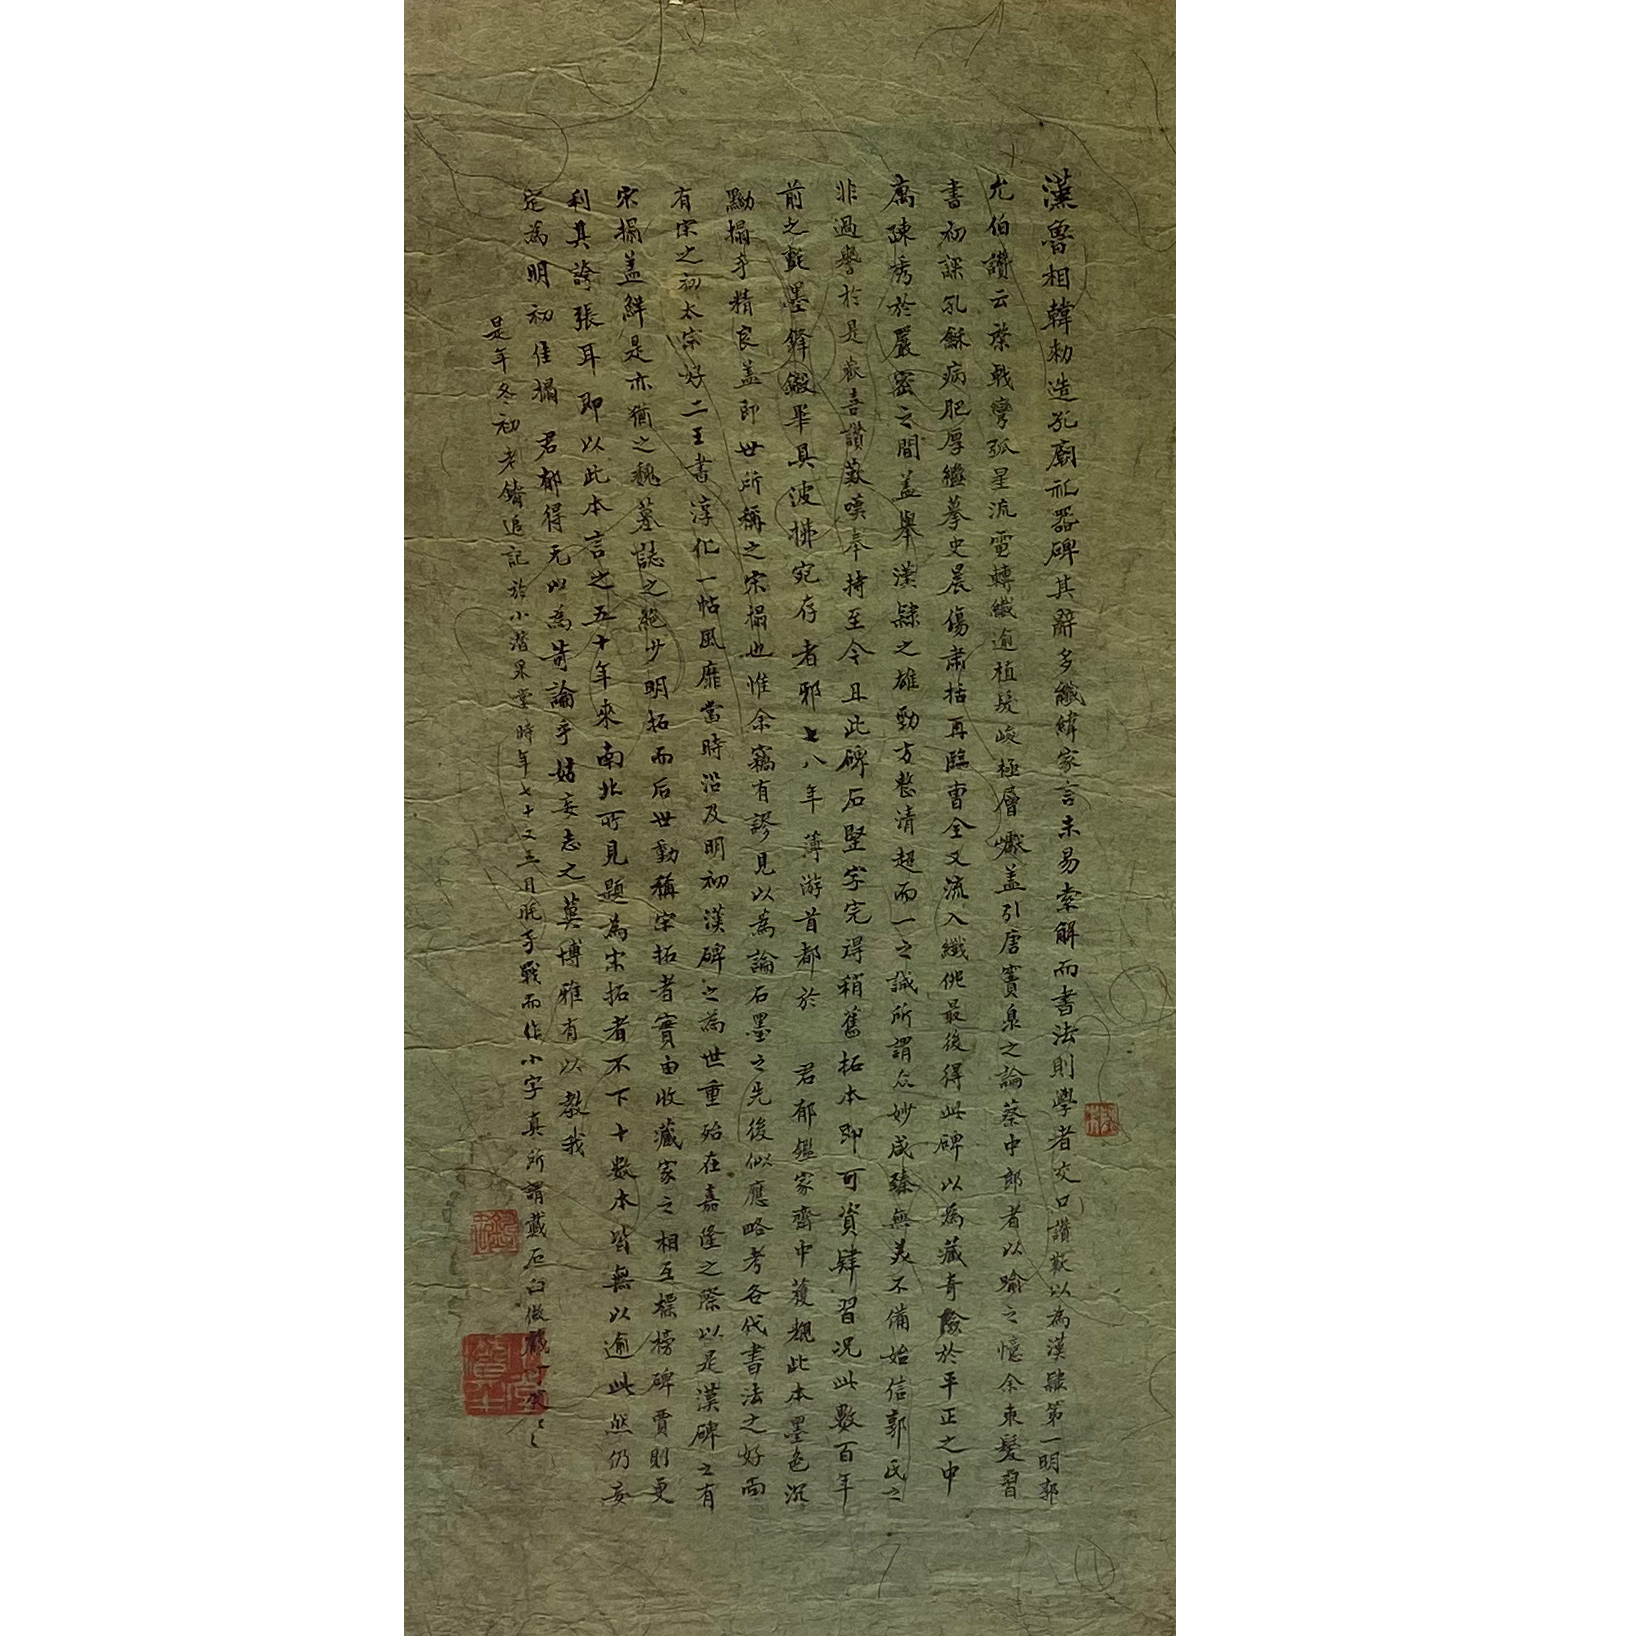 漢魯相韓勑造孔廟礼器碑其辭多讖緯家言未易索解而書法則學者交口讚歎以為漢隸第一明郭
允伯讚云棨戟彎弧星流電轉纖逾植髮峻極層巘盖引唐竇臮之論蔡中郎者以喻之憶余束髮習
書初課孔龢病肥厚繼摹史晨傷肅括再臨曹全又流入纖佻最後得此碑以為藏奇險於平正之中
寓踈秀於嚴密之間盖舉漢隸之雄勁方整清超而一之誠所謂众妙咸臻無美不備始信郭氏之
非過譽於是歡喜讚歎嘆奉持至今且此碑石堅字完得稍舊拓本即可資肄習况此數百年
前之氈墨鋒鎩畢具波拂宛存者邪七八年薄游首都於 君郁鑑家齋中獲觀此本墨色沉
黝搨手精良盖即世所稱之宋搨也惟余竊有謬見以為論石墨之先後似應略考各代書法之好尚
有宋之初太宗好二王書淳化一帖風靡當時沿及明初漢碑之為世重殆在嘉隆之際以是漢碑之有
宋搨盖鮮是亦猶之魏墓誌之絕少明拓而后世動稱宋拓者實由收藏家之相互標榜碑賈則更
利其誇張耳即以此本言之五十年來南北所見題為宋拓者不下十數本皆無以逾此然仍妄
定為明初佳搨 君郁得无以為苛論乎姑妄志之冀博雅有以教我
是年冬初老鑄追記於小潜采堂時年七十又五月眊手戰而作小字真所謂戴石臼做戲